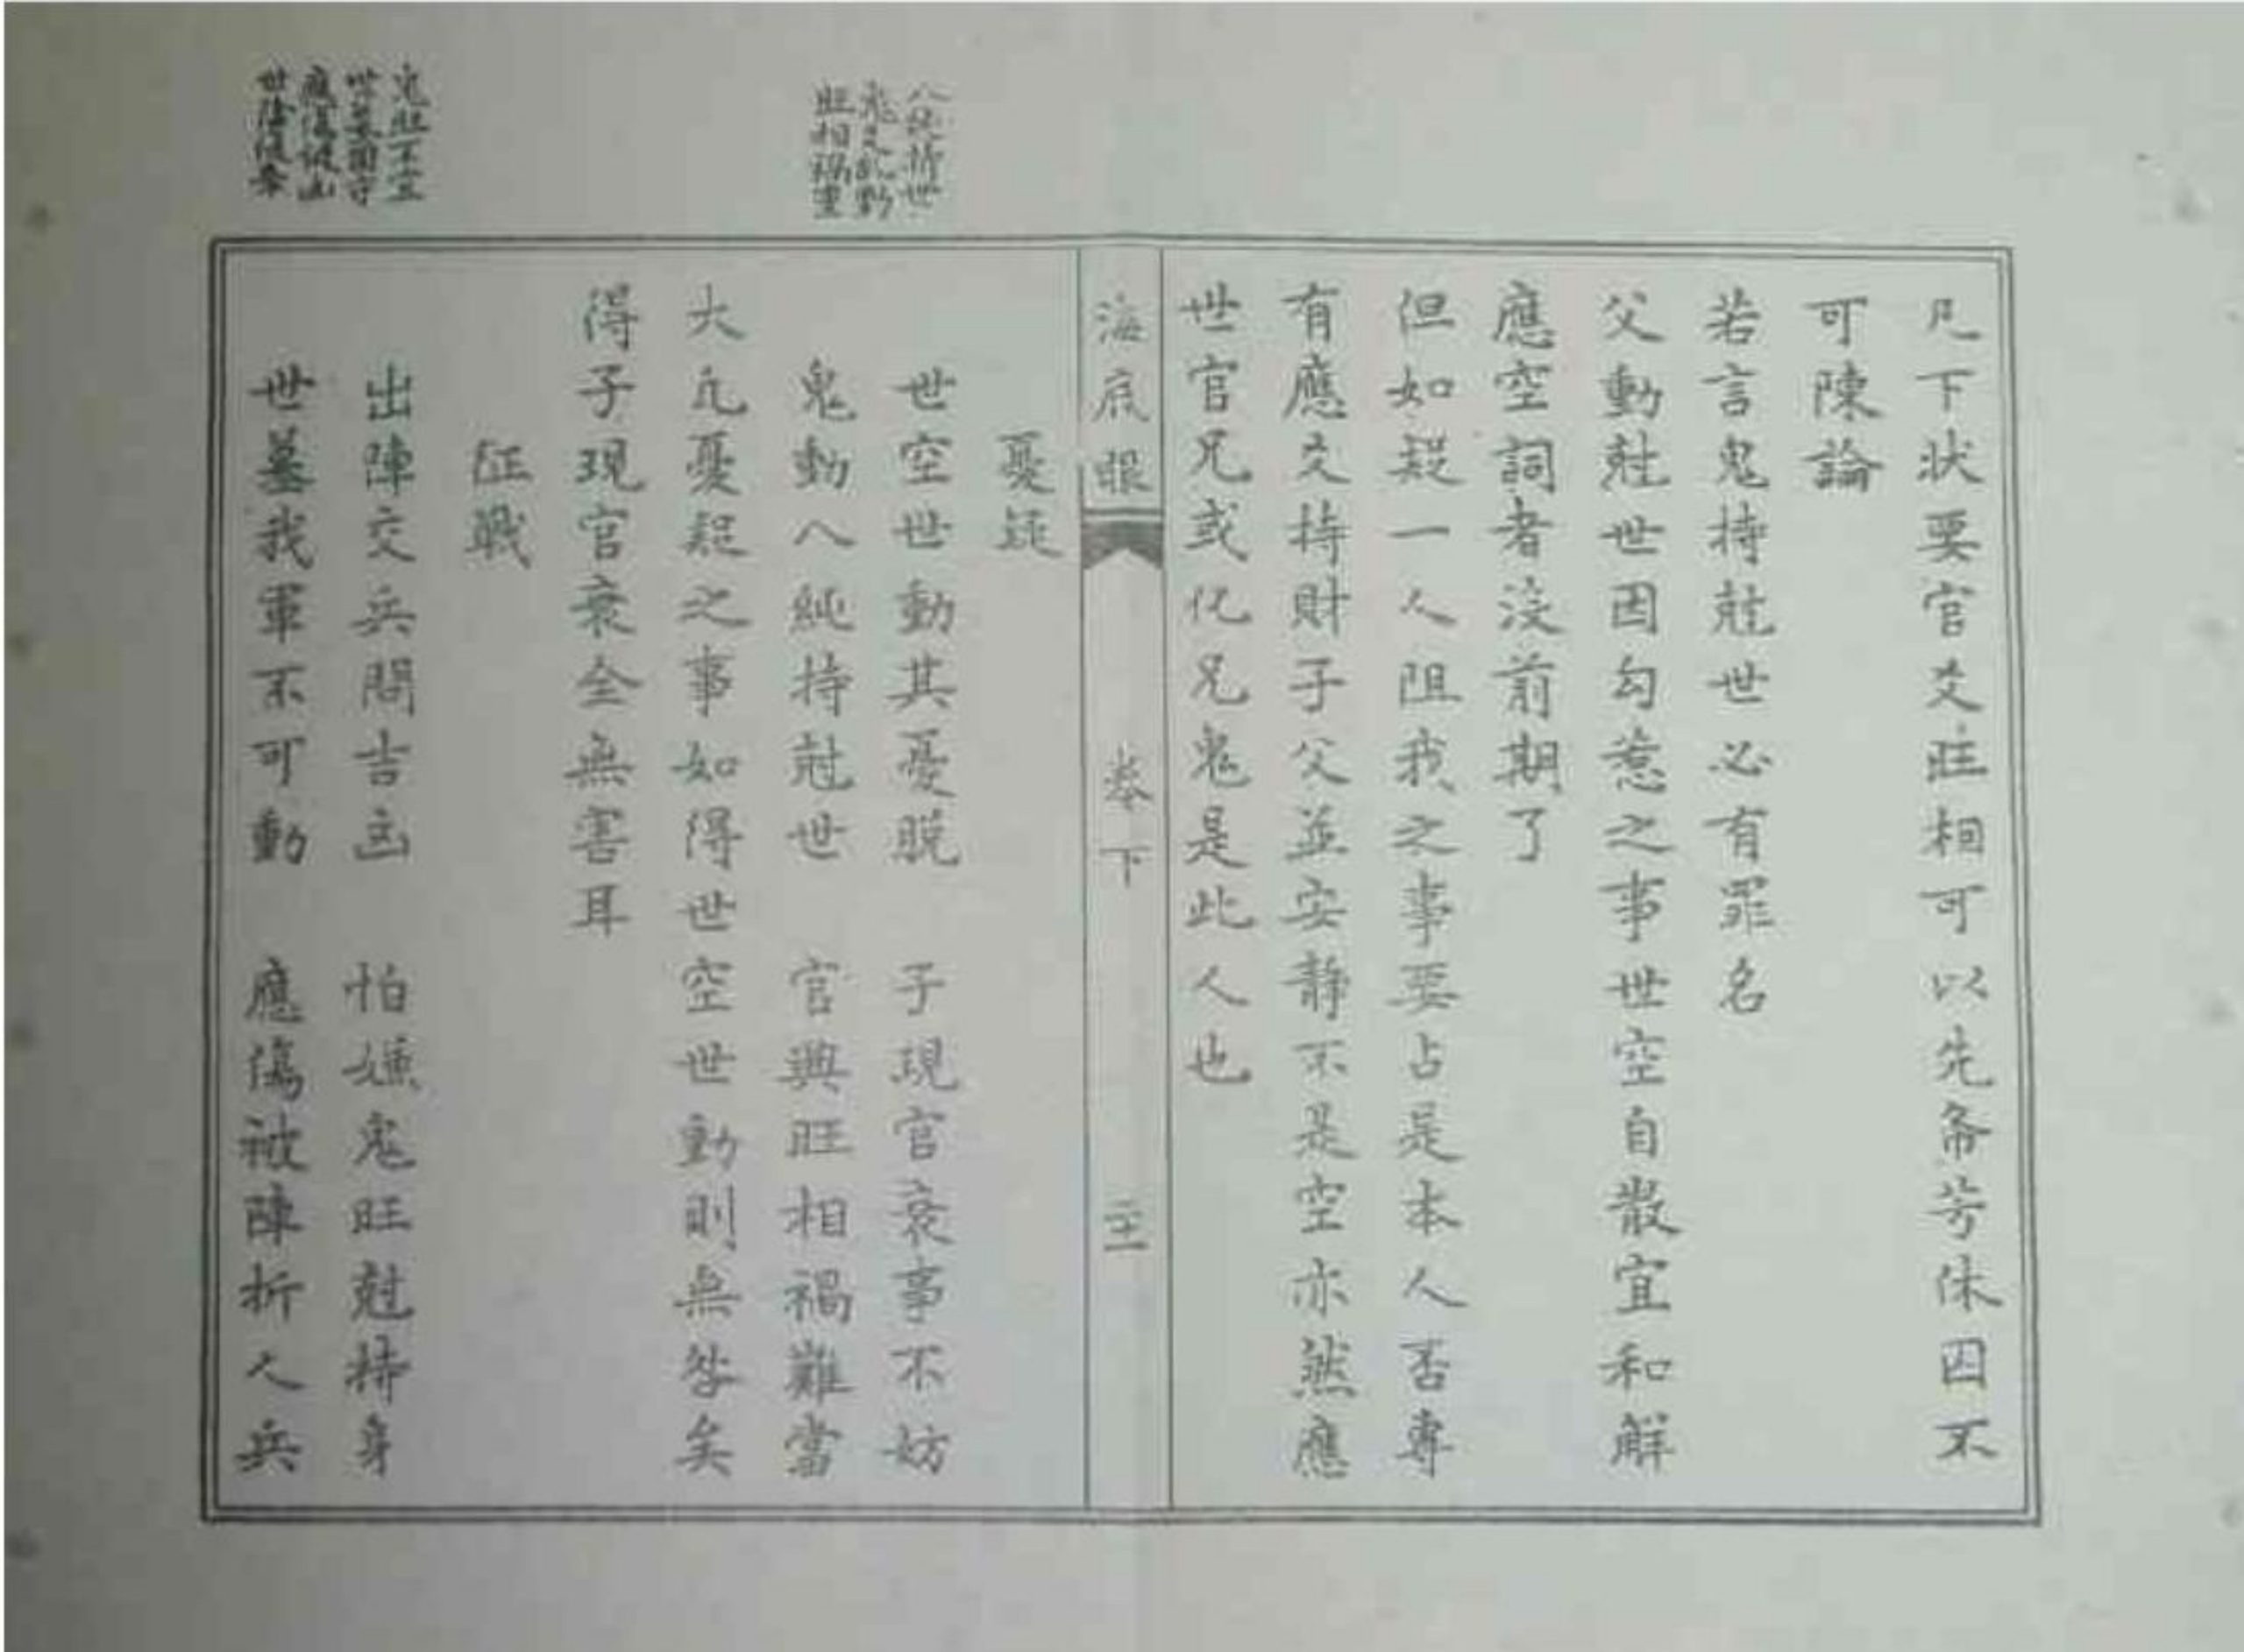 凡下狀要官爻旺相可以先斋若休囚不
可陳論
若言鬼持尅世必有罪名
父動尅世因勾惹之事世空自散宜和解
應空詞者没前期了
但如疑一人阻我之事要占是本人否專
有應爻持財子父並安静不是空亦然應
世官兄或化兄鬼是此人也
海底眼
卷下
憂疑
世空世動其憂脱 子現官衰事不妨
鬼動八純持尅世 官興旺相禍難當
大凡憂疑之事如得世空世動則無咎矣
得子現官衰全無害耳
征戰
出陣交兵問吉凶 怕嫌鬼旺尅持身
世墓我軍不可動 應傷被陣折人兵
八純持世
鬼爻乱動
旺相禍重